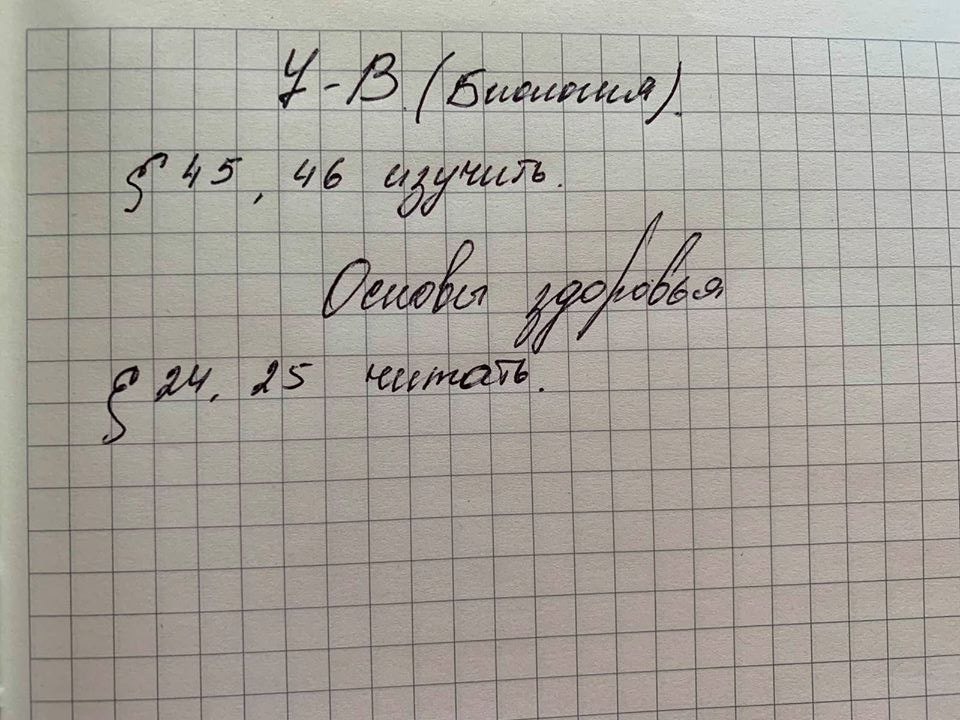 7-В. (Биология).
§ 45, 46 изучить.
Основы здоровья
§ 24, 25 читать.